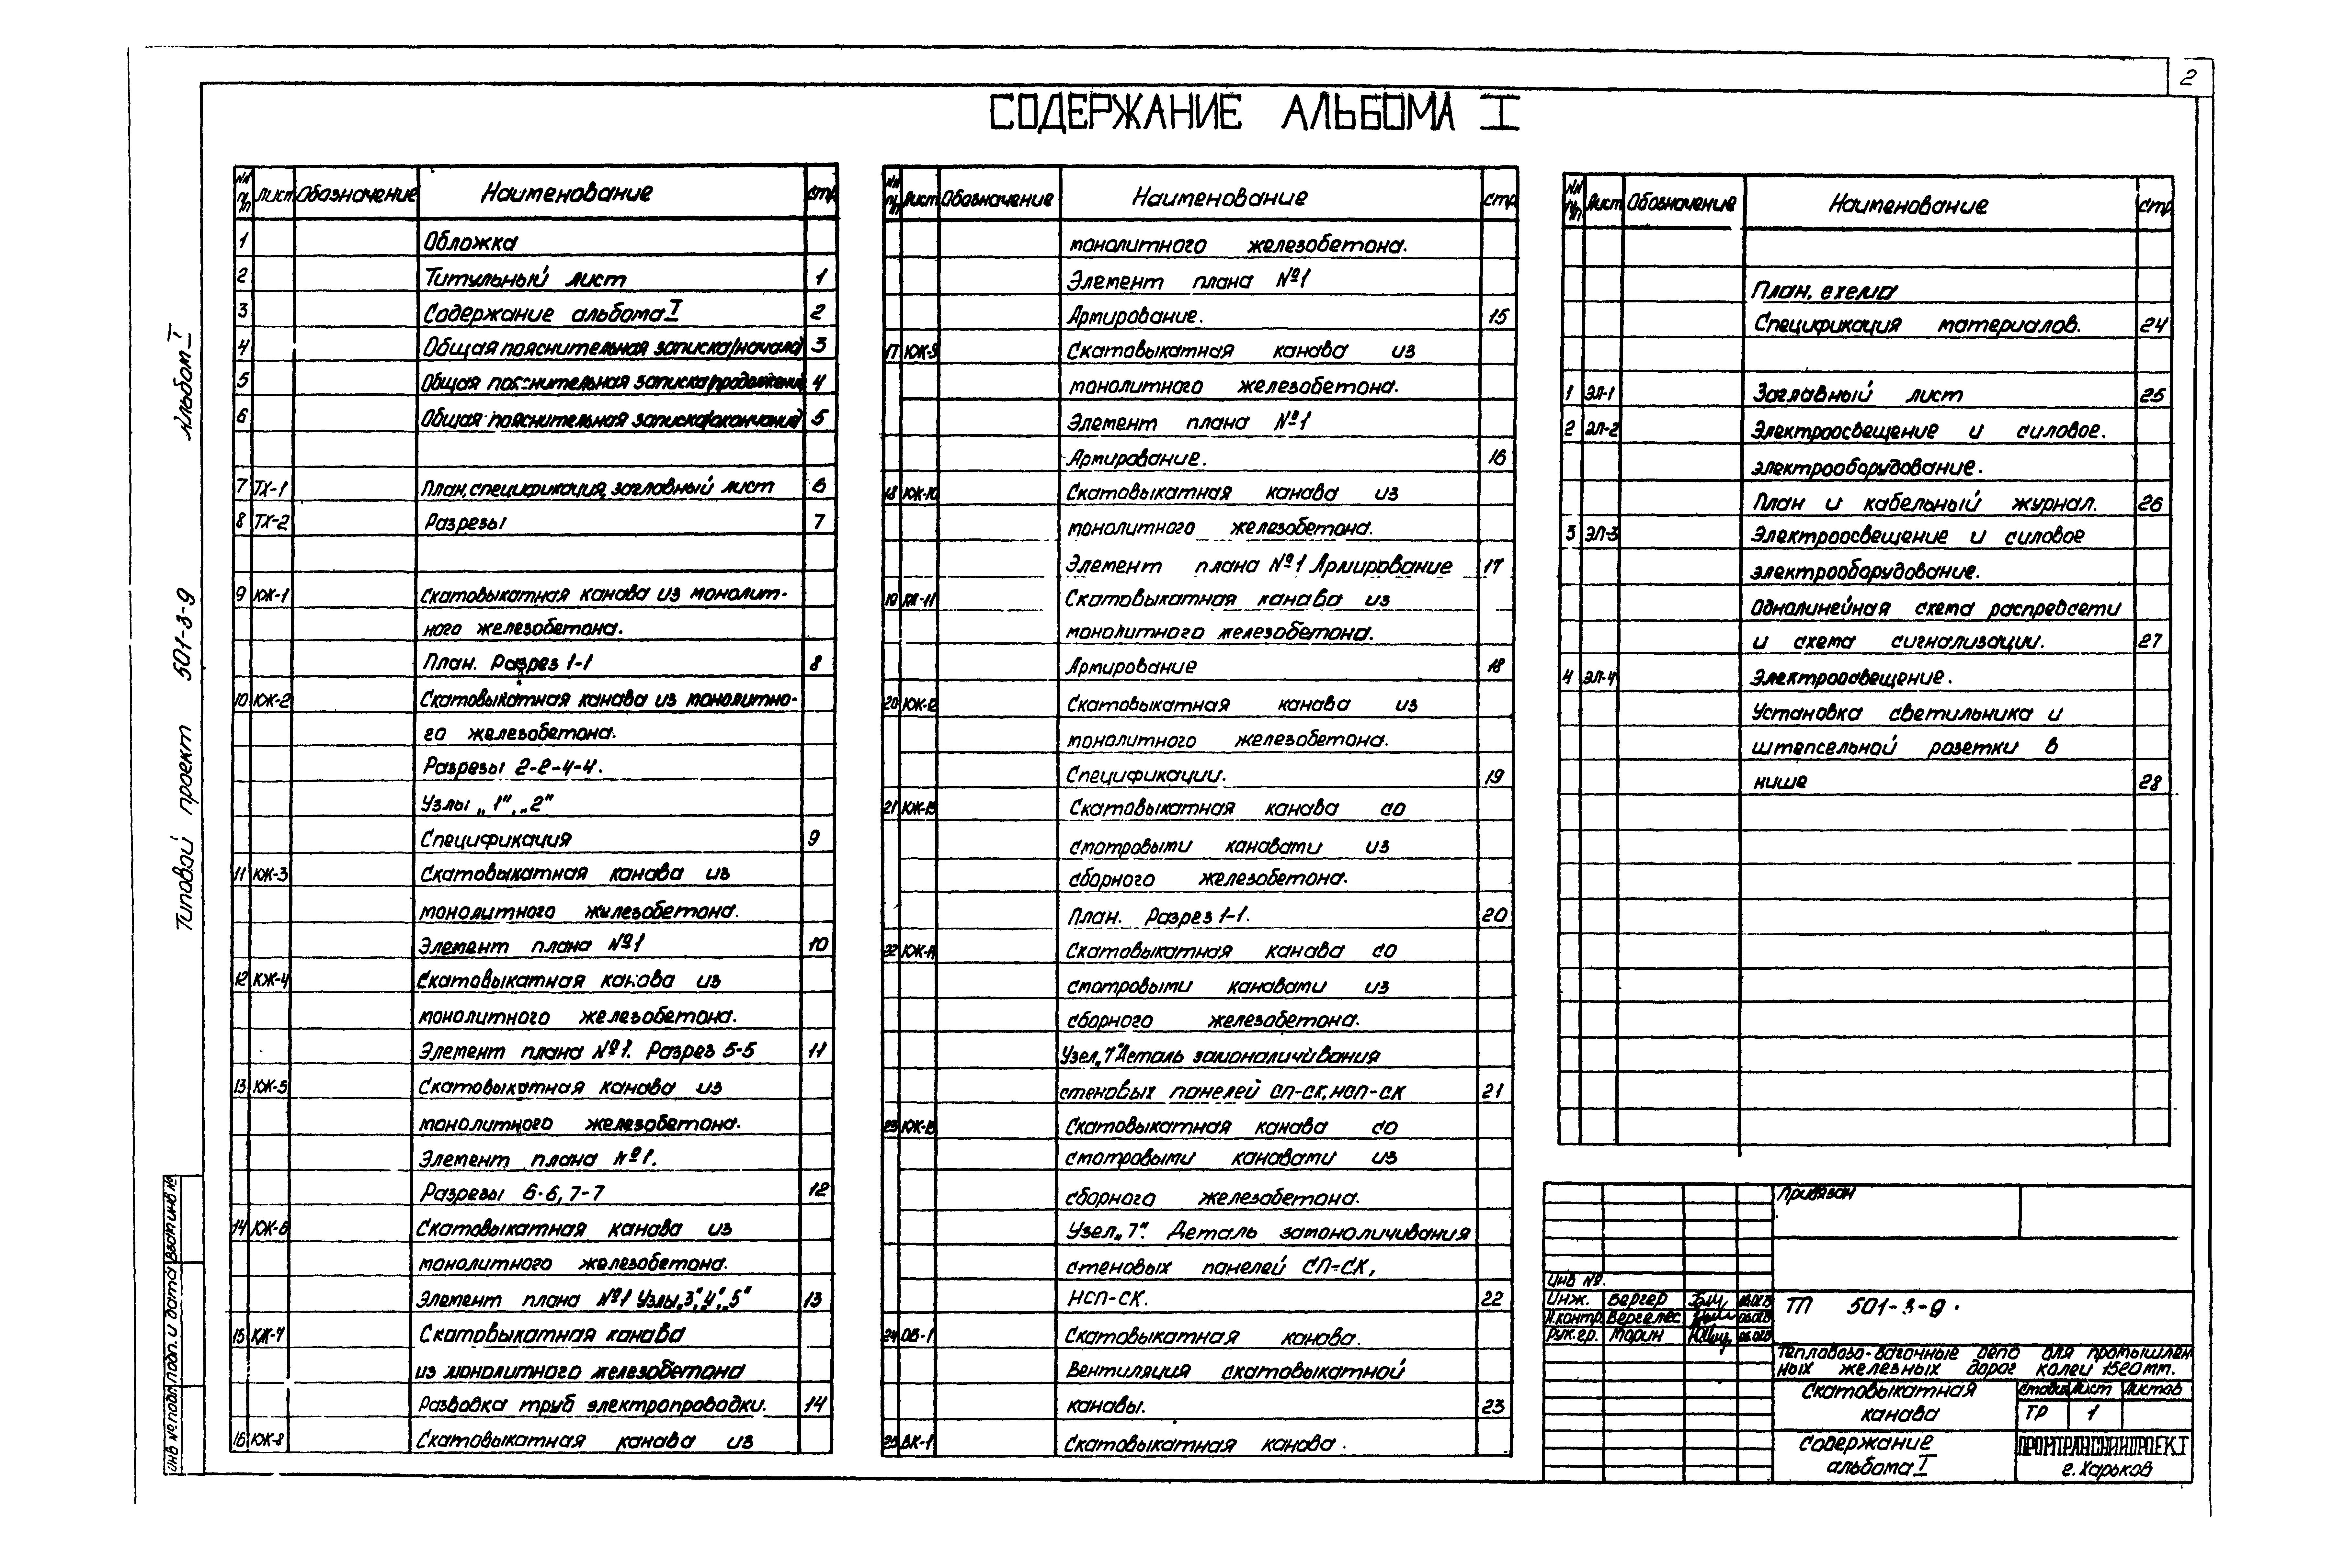 2
СОДЕРЖАНИЕ АЛЬБОМА I
Альбом I
Типовой проект 501-3-9
№№ п/п Лист Обозначение Наименование стр
1 Обложка
2 Титульный лист 1
3 Содержание альбома I 2
4 Общая пояснительная записка (начало) 3
5 Общая пояснительная записка (продолжение) 4
6 Общая пояснительная записка (окончание) 5
7 ТХ-1 План, спецификация, заглавный лист 6
8 ТХ-2 Разрезы 7
9 КЖ-1 Скатовыкатная канава из монолит-
ного железобетона.
План. Разрез 1-1 8
10 КЖ-2 Скатовыкатная канава из монолитно-
го железобетона.
Разрезы 2-2-4-4.
Узлы „1", „2"
Спецификация 9
11 КЖ-3 Скатовыкатная канава из
монолитного железобетона.
Элемент плана №1 10
12 КЖ-4 Скатовыкатная канава из
монолитного железобетона.
Элемент плана №1. Разрез 5-5 11
13 КЖ-5 Скатовыкатная канава из
монолитного железобетона.
Элемент плана №1.
Разрезы 6-6, 7-7 12
14 КЖ-6 Скатовыкатная канава из
монолитного железобетона.
Элемент плана №1 Узлы „3", „4", „5" 13
15 КЖ-7 Скатовыкатная канава
из монолитного железобетона
Разводка труб электропроводки. 14
16 КЖ-8 Скатовыкатная канава из
№№ п/п Лист Обозначение Наименование стр
монолитного железобетона.
Элемент плана №1
Армирование. 15
17 КЖ-9 Скатовыкатная канава из
монолитного железобетона.
Элемент плана №1
Армирование. 16
18 КЖ-10 Скатовыкатная канава из
монолитного железобетона.
Элемент плана №1 Армирование 17
19 КЖ-11 Скатовыкатная канава из
монолитного железобетона.
Армирование 18
20 КЖ-12 Скатовыкатная канава из
монолитного железобетона.
Спецификации. 19
21 КЖ-13 Скатовыкатная канава со
смотровыми канавами из
сборного железобетона.
План. Разрез 1-1. 20
22 КЖ-14 Скатовыкатная канава со
смотровыми канавами из
сборного железобетона.
Узел „7" Деталь замоноличивания
стеновых панелей СП-СК, НСП-СК 21
23 КЖ-15 Скатовыкатная канава со
смотровыми канавами из
сборного железобетона.
Узел „7". Деталь замоноличивания
стеновых панелей СП-СК,
НСП-СК. 22
24 ОВ-1 Скатовыкатная канава.
Вентиляция скатовыкатной
канавы. 23
25 ВК-1 Скатовыкатная канава.
№№ п/п Лист Обозначение Наименование стр
План, схема
Спецификация материалов. 24
1 ЭЛ-1 Заглавный лист 25
2 ЭЛ-2 Электроосвещение и силовое.
электрооборудование.
План и кабельный журнал. 26
3 ЭЛ-3 Электроосвещение и силовое
электрооборудование.
Однолинейная схема распредсети
и схема сигнализации. 27
4 ЭЛ-4 Электроосвещение.
Установка светильника и
штепсельной розетки в
нише 28
Привязан
Инв №.
Инж. Бергер
Н.контр. Вергелес
Рук.гр. Марин
ТП 501-3-9.
Тепловозо-вагонные депо для промышлен-
ных железных дорог колеи 1520 мм.
Скатовыкатная
канава
Стадия Лист Листов
ТР 1
Содержание
альбома I
ПРОМТРАНСНИИПРОЕКТ
г. Харьков
Инв № подл. Подп. и дата Взам инв №